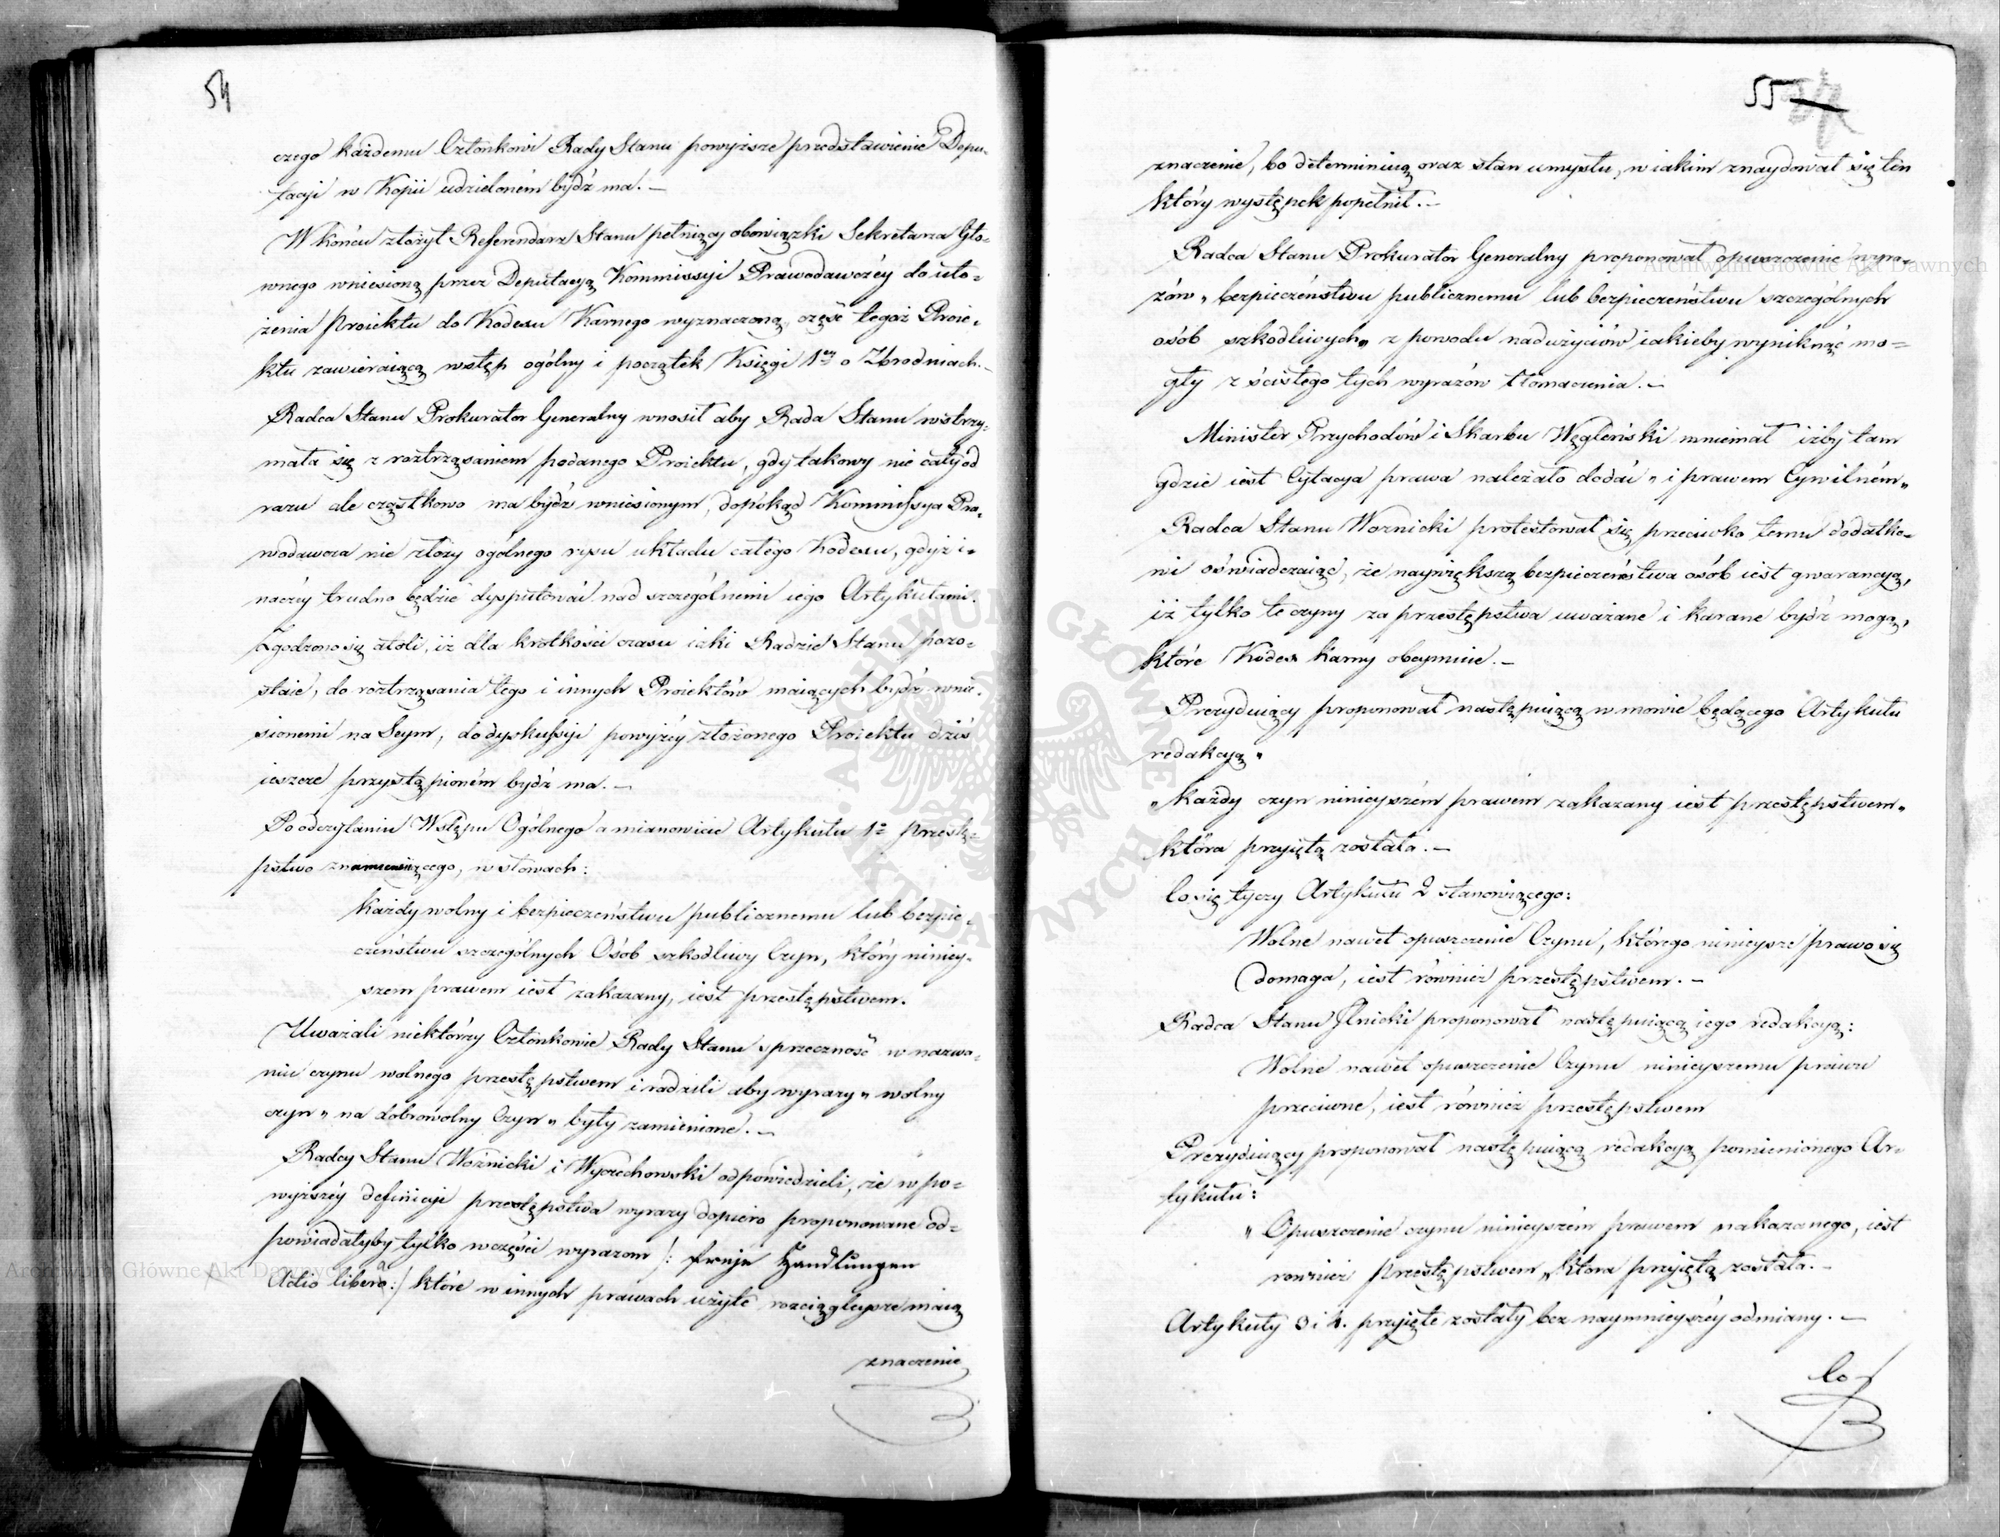 54
czego każdemu Członkowi Rady Stanu powyższe przedstawienie Depu-
tacyi w Kopii udzielonem bydź ma. —
W końcu złożył Referendarz Stanu pełniący obowiązki Sekretarza Głó-
wnego wniesioną przez Deputacyą Kommissyi Prawodawczéy do uło-
żenia Proiektu do Kodexu Karnego wyznaczoną, część tegoż Proie-
ktu zawieraiącą wstęp ogólny i początek Księgi 1ey o Zbrodniach. —
Radca Stanu Prokurator Generalny wnosił aby Rada Stanu wstrzy-
mała się z roztrząsaniem podanego Proiektu, gdy takowy nie cały od
razu ale cząstkowo ma bydź wniesionym, dopókąd Kommissya Pra-
wodawcza nie złoży ogólnego rysu układu całego Kodexu, gdyż i-
naczéy trudno będzie dysputować nad szczególnemi iego Artykułami.
Zgodzono się atoli, iż dla krótkości czasu iaki Radzie Stanu pozo-
staie, do roztrząsania tego i innych Proiektów maiących bydź wnie-
sionemi na Seym, do dyskussyi powyżéy złożonego Proiektu dziś
ieszcze przystąpioném bydź ma. —
Po odczytaniu Wstępu Ogólnego a mianowicie Artykułu 1o przestę-
pstwo znamienuiącego, w słowach:
Każdy wolny i bezpieczeństwu publicznemu lub bezpie-
czeństwu szczególnych Osób szkodliwy Czyn, który niniey-
szem prawem iest zakazany, iest przestępstwem.
Uważali niektórzy Członkowie Rady Stanu sprzeczność w nazwa-
niu czynu wolnego przestępstwem i radzili aby wyrazy „ wolny
czyn „ na dobrowolny Czyn „ były zamienione. —
Radcy Stanu Woźnicki i Wyczechowski odpowiedzieli, że w po-
wyższéy definicyi przestępstwa wyrazy dopiero proponowane od-
powiadałyby tylko w części wyrazom /: freye Handlungen
Actio libera :/ które w innych prawach użyte rozciągleysze maią
znaczenie
55
znaczenie, bo determinuią oraz stan umysłu, w iakim znaydował się ten
który występek popełnił. —
Radca Stanu Prokurator Generalny proponował opuszczenie wyra-
zów „ bezpieczeństwu publicznemu lub bezpieczeństwu szczególnych
osób szkodliwych „ z powodu nadużyciów iakieby wyniknąć mo-
gły z ścisłego tych wyrazów tłomaczenia. —
Minister Przychodów i Skarbu Węgleński mniemał iżby tam
gdzie iest Cytacya prawa należało dodać „ i prawem Cywilném „
Radca Stanu Woźnicki protestował się przeciwko temu dodatko-
wi oświadczaiąc, że naywiększą bezpieczeństwa osób iest gwarancyą,
iż tylko te czyny za przestępstwa uważane i karane bydź mogą,
które Kodex Karny obeymuie. —
Prezyduiący proponował następuiącą w mowie będącego Artykułu
redakcyą „
„ Każdy czyn ninieyszém prawem zakazany iest przestępstwem „
która przyiętą została. —
Co się tyczy Artykułu 2 stanowiącego:
Wolne nawet opuszczenie Czynu, którego ninieysze prawo się
domaga, iest również przestępstwem. —
Radca Stanu Ilnicki proponował następuiącą iego redakcyą:
Wolne nawet opuszczenie Czynu ninieyszemu prawu
przeciwne, iest również przestępstwem
Prezyduiący proponował następuiącą redakcyą pomienionego Ar-
tykułu:
„ Opuszczenie czynu ninieyszém prawem nakazanego, iest
również przestępstwem „ która przyiętą została. —
Artykuły 3 i 4. przyięte zostały bez naymnieyszéy odmiany. —
Co
Archiwum Główne Akt Dawnych